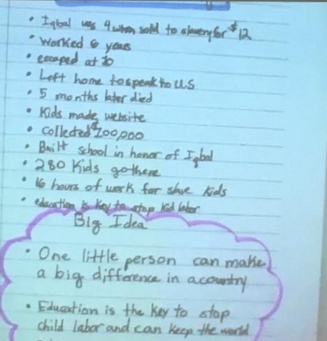 • Iqbal was 4 when sold to slavery for $12
• Worked 6 years
• escaped at 10
• Left home to speak to U.S
• 5 months later died
• Kids made website
• Collected $100,000
• Built school in honor of Iqbal
• 280 Kids go there
• 16 hours of work for slave kids
• education is key to stop kid labor
Big Idea
• One little person can make
a big difference in a country
• Education is the key to stop
child labor and can keep the world